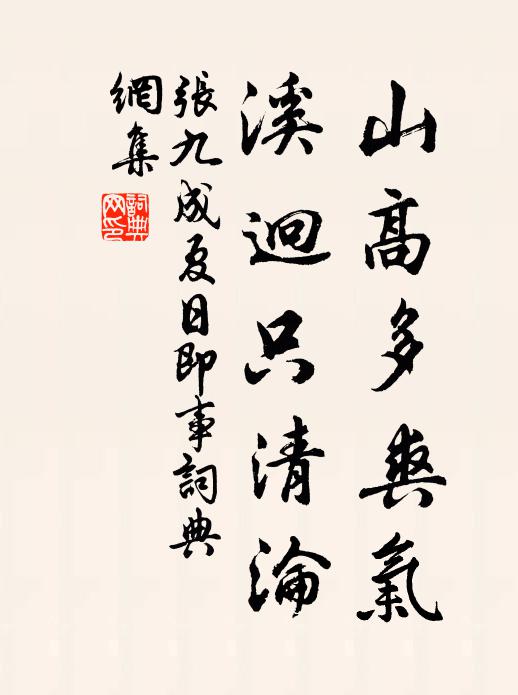 山高多爽氣
溪迴只清淪
張九成夏日即事詞典
網集
詞典網印